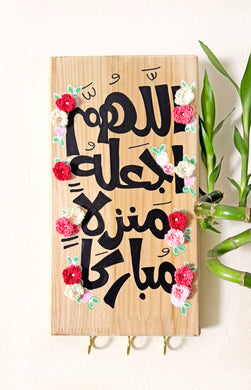 اللهم
اجعله
منزلاً
مباركاً